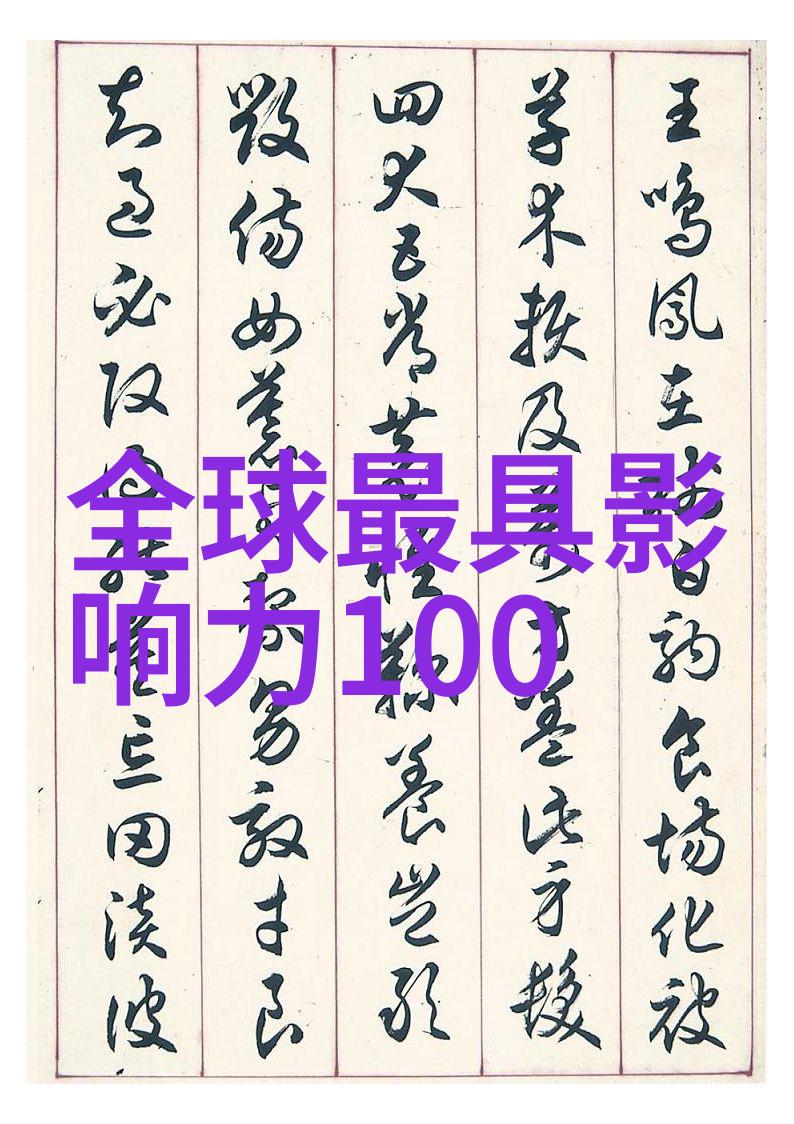 王鳴鳳在樹白駒食場化被
草木賴及萬方蓋此身髮
四大五常恭惟鞠養豈敢
毀傷女慕貞絜男效才良
知過必改得能莫忘罔談彼
全球最具影
响力100